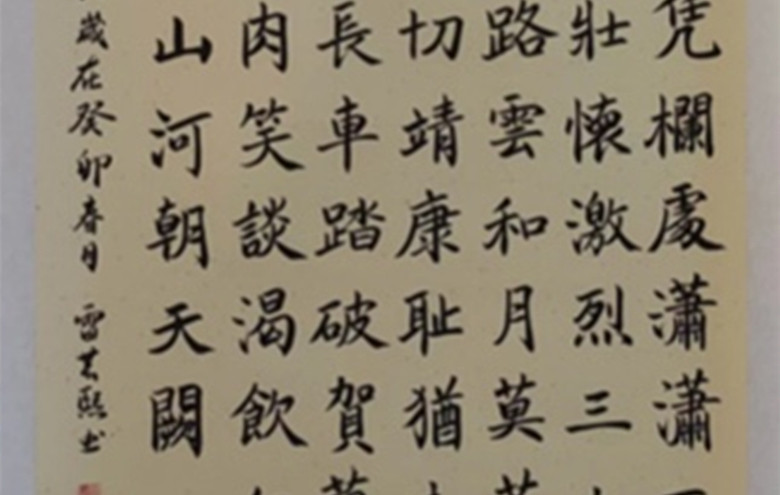 凭欄處瀟瀟
壯懷激烈三
路雲和月莫
切靖康恥猶
長車踏破賀
肉笑談渴飲
山河朝天闕
歲在癸卯春月
書